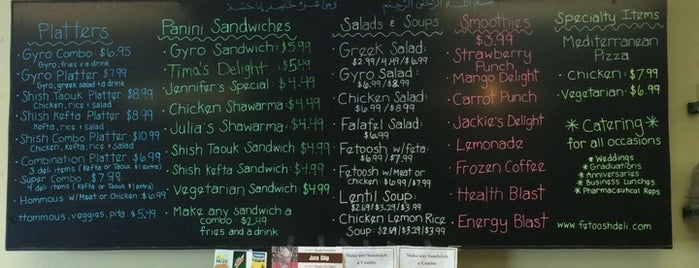 بسم الله الرحمن الرحيم
Platters
· Gyro Combo $6.95
Gyro, fries + a drink
· Gyro Platter $7.99
Gyro, greek salad + a drink
· Shish Taouk Platter $8.99
Chicken, rice + salad
· Shish Kefta Platter $8.99
Kefta, rice + salad
· Shish Combo Platter $10.99
Chicken, Kefta, rice + salad
· Combination Platter $6.99
3 deli items (Kefta or Taouk $1 extra)
· Super Combo $7.99
4 deli items (Kefta or Taouk $1 extra)
· Hommous w/Meat or Chicken $6.99
· Hommous, veggies, pita $5.49
Panini Sandwiches
· Gyro Sandwich: $5.99
· Timo's Delight: $5.49
· Jennifer's Special: $4.49
· Chicken Shawarma: $4.99
· Julia's Shawarma: $4.99
· Shish Taouk Sandwich $4.99
· Shish Kefta Sandwich: $4.99
· Vegetarian Sandwich $4.99
· Make any sandwich a
combo: $2.49
fries and a drink
Salads & Soups
· Greek Salad:
$2.99/4.49/6.49
· Gyro Salad:
$6.99/$8.99
· Chicken Salad:
$6.99/$8.99
· Falafel Salad:
$6.99
· Fetoosh w/feta:
$6.99/$7.99
· Fetoosh w/Meat or
Chicken $6.99/$7.99
· Lentil Soup:
$2.69/$3.29/$3.99
· Chicken Lemon Rice
Soup: $2.69/$3.29/$3.99
Smoothies
$3.99
· Strawberry
Punch
· Mango Delight
· Carrot Punch
· Jackie's Delight
· Lemonade
· Frozen Coffee
· Health Blast
· Energy Blast
Specialty Items
Mediterranean
Pizza
· Chicken: $7.99
· Vegetarian: $6.99
* Catering *
for all occasions
* Weddings
* Graduations
* Anniversaries
* Business Lunches
* Pharmaceutical Reps
www.fetooshdeli.com
Java Chip
Make any Sandwich
a Combo
Make any Sandwich
a Combo